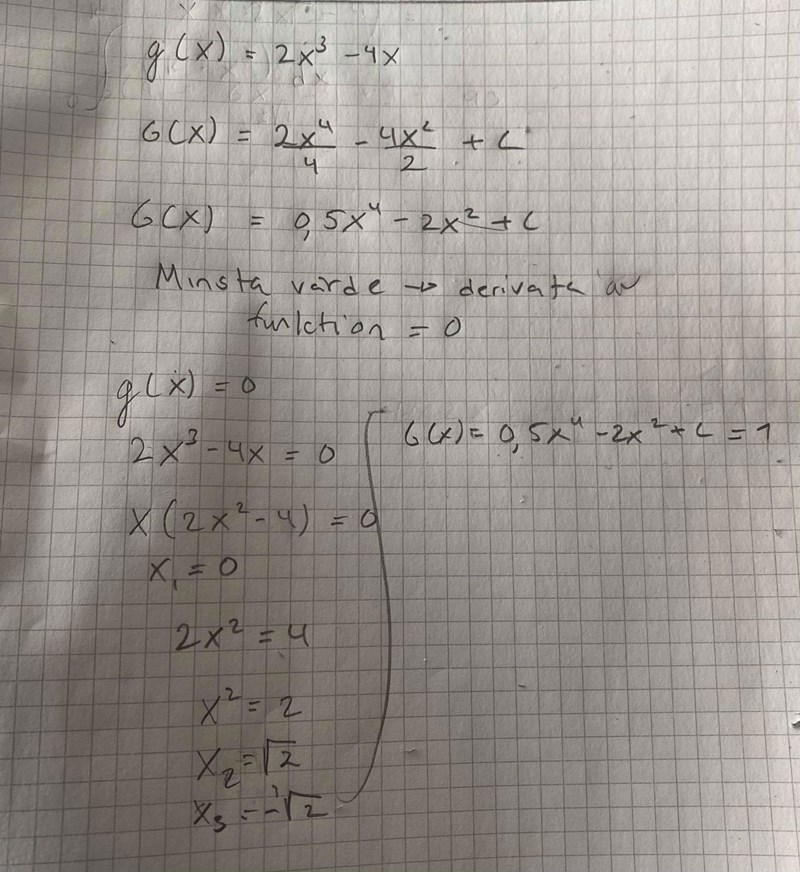 g(x) = 2x³ - 4x
G(x) = 2x⁴/4 - 4x²/2 + C
G(x) = 0,5x⁴ - 2x² + C
Minsta värde → derivata av
funktion = 0
g(x) = 0
2x³ - 4x = 0
x(2x² - 4) = 0
x₁ = 0
2x² = 4
x² = 2
x₂ = √2
x₃ = -√2
G(x) = 0,5x⁴ - 2x² + C = 1